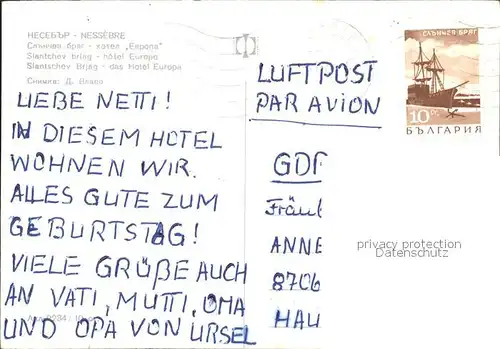 НЕСЕБЪР - NESSÈBRE
Слънчев бряг - хотел „Европа"
Slantchev briag - hôtel Europa
Slantschev Brjag - das Hotel Europa
Снимка: Д.
LIEBE NETTI!
IN DIESEM HOTEL
WOHNEN WIR.
ALLES GUTE ZUM
GEBURTSTAG!
VIELE GRÜßE AUCH
AN VATI, MUTTI, OMA
UND OPA VON URSEL
LUFTPOST
PAR AVION
СЛЪНЧЕВ БРЯГ
10
БЪЛГАРИЯ
GDF
Fräul
ANNE
8706
HAU
privacy protection
Datenschutz